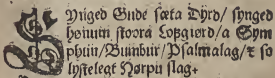 SYnged Gude ſæta Dyrd / ſynged
hønum ſtoora Lofgierd / a Sym
phun / Bumbur / Pſalmalag / & ſo
lyſtelegt Hørpu ſlag.